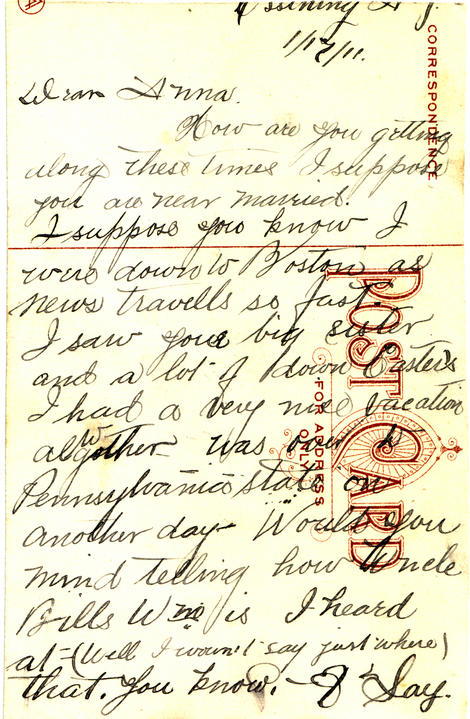 Ossining N.Y.
1/17/11.
Dear Anna.
How are you getting
along these times I suppose
you are near married.
I suppose you know I
were down to Boston as
news travells so fast.
I saw your big sister
and a lot of down Easter's
I had a very nice vacation
altogether was over to
Pennsylvania state on
another day Would you
mind telling how Uncle
Bills Wm is I heard
at (Well I woun't say just where)
that. you know. I Say.
CORRESPONDENCE
POST CARD
FOR ADDRESS
ONLY